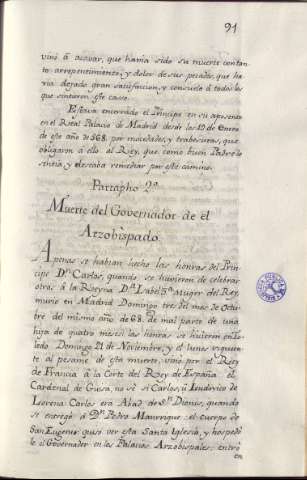 91
vinó á acavar, que havia sido su muerte con tan-
to arrepentimiento, y dolor de sus pecados, que ha-
via dejado gran satisfacion, y consuelo á todos los
que sintieron este caso.
Estava encerrado el Principe en su aposento
en el Real Palacio de Madrid desde los 19 de Enero
de este año de 568. por mocedades, y trabesuras, que
obligaron á ello al Rey, que como buen Padre lo
sintia, y deseaba remediar por este camino.
Parrapho 2º
Muerte del Governador de el
Arzobispado
Apenas se habian hecho las honras del Prin-
cipe Dn. Carlos, quando se huvieron de celebrar
otras á la Reyna Dª Isabel 3ª Muger del Rey,
murió en Madrid Domingo tres del mes de Octu-
bre del mismo año de 68. de mal parto de una
hija de quatro meses: las honras se hicieron en To-
ledo Domingo 21 de Noviembre, y el lunes siguien-
te al pesame de esta muerte vino por el Rey
de Francia á la Corte del Rey de España el
Cardenal de Guisa, no sé si Carlos, ú Ludovico de
Lorena Carlos era Abad de Sn. Dionis, quando
se entregó á Dn. Pedro Manrrique el cuerpo de
San Eugenio: quisó ver esta Santa Iglesia, y hospedó-
le el Governador en los Palacios Arzobispales: entró
en